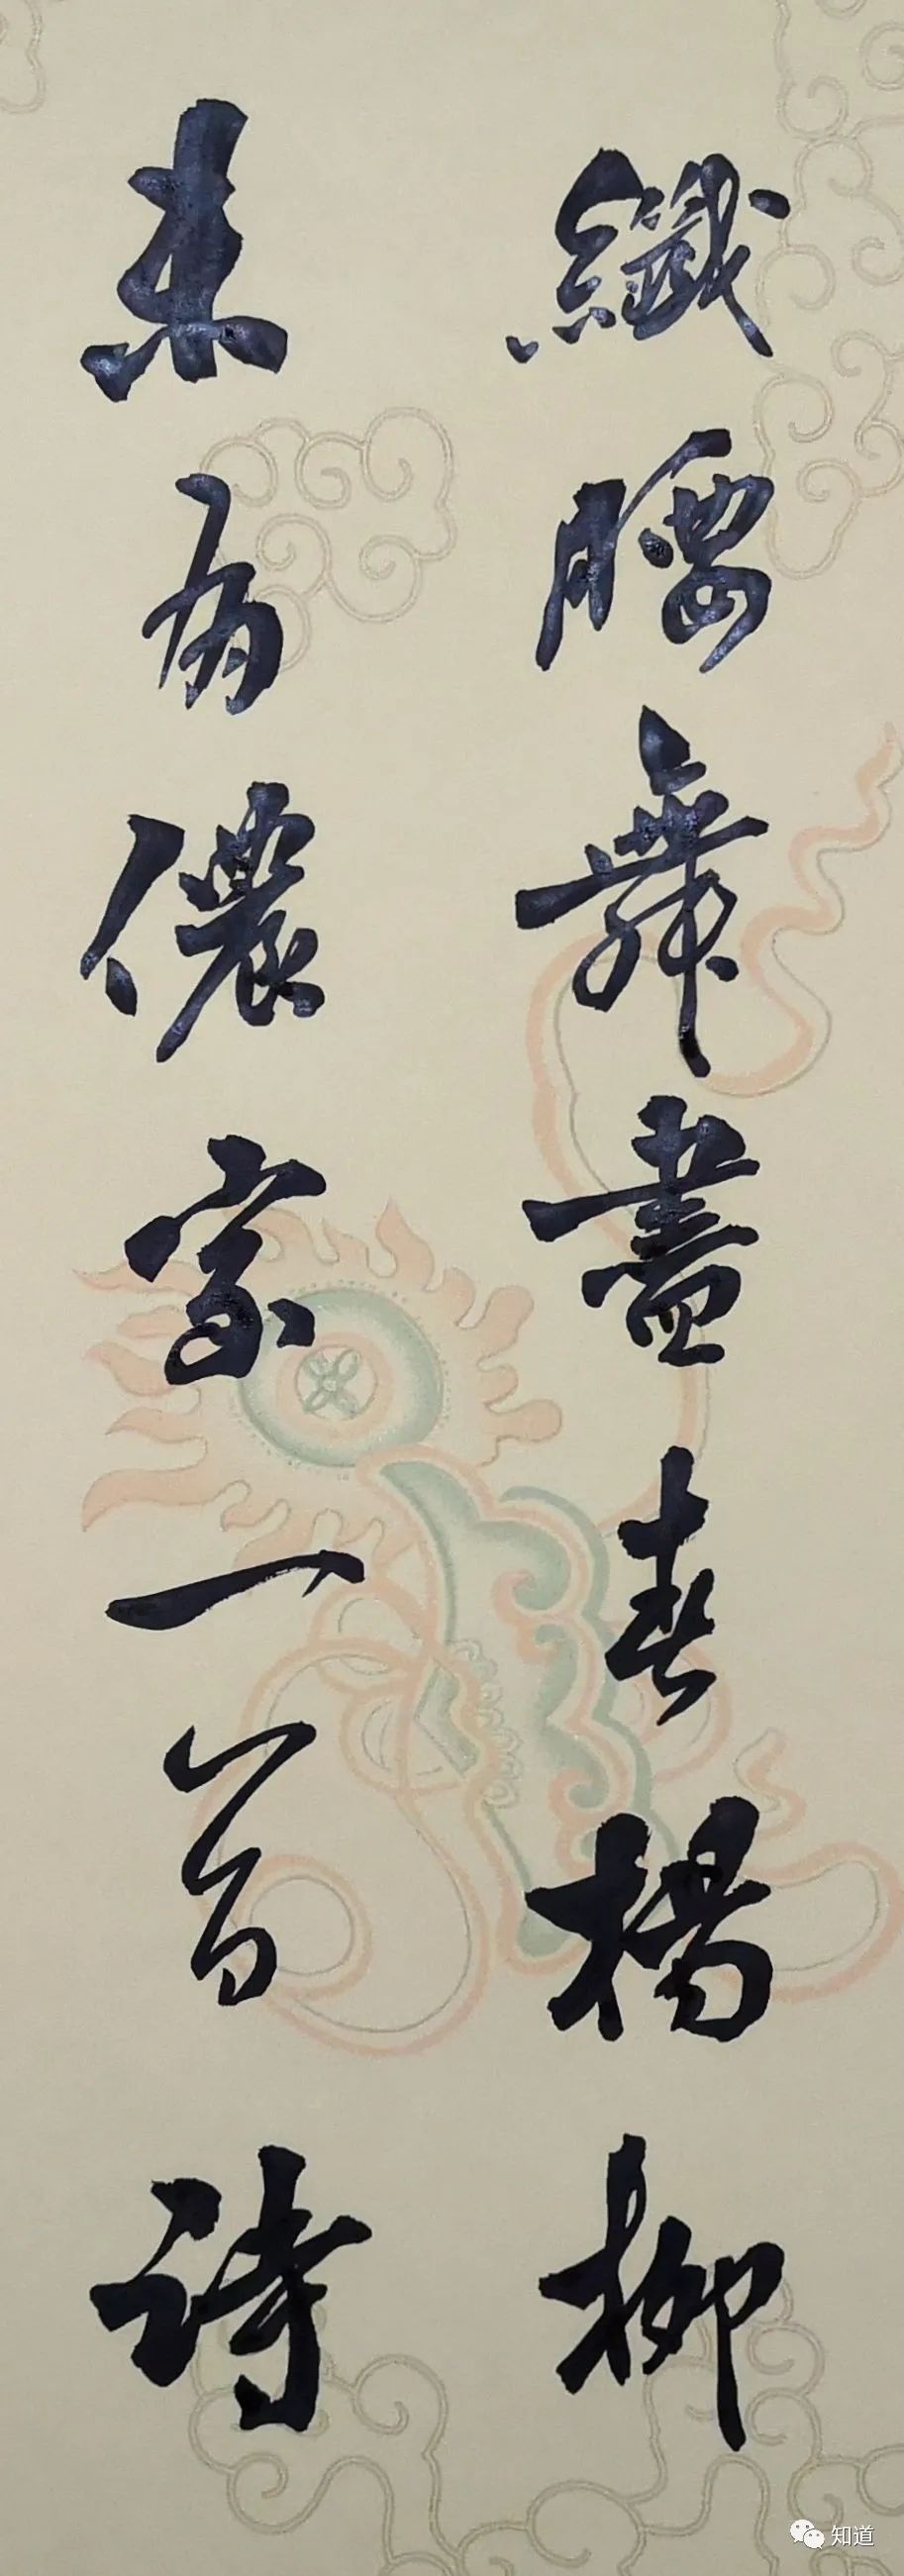 纖腰舞盡春楊柳
未有儂家一首詩
知道